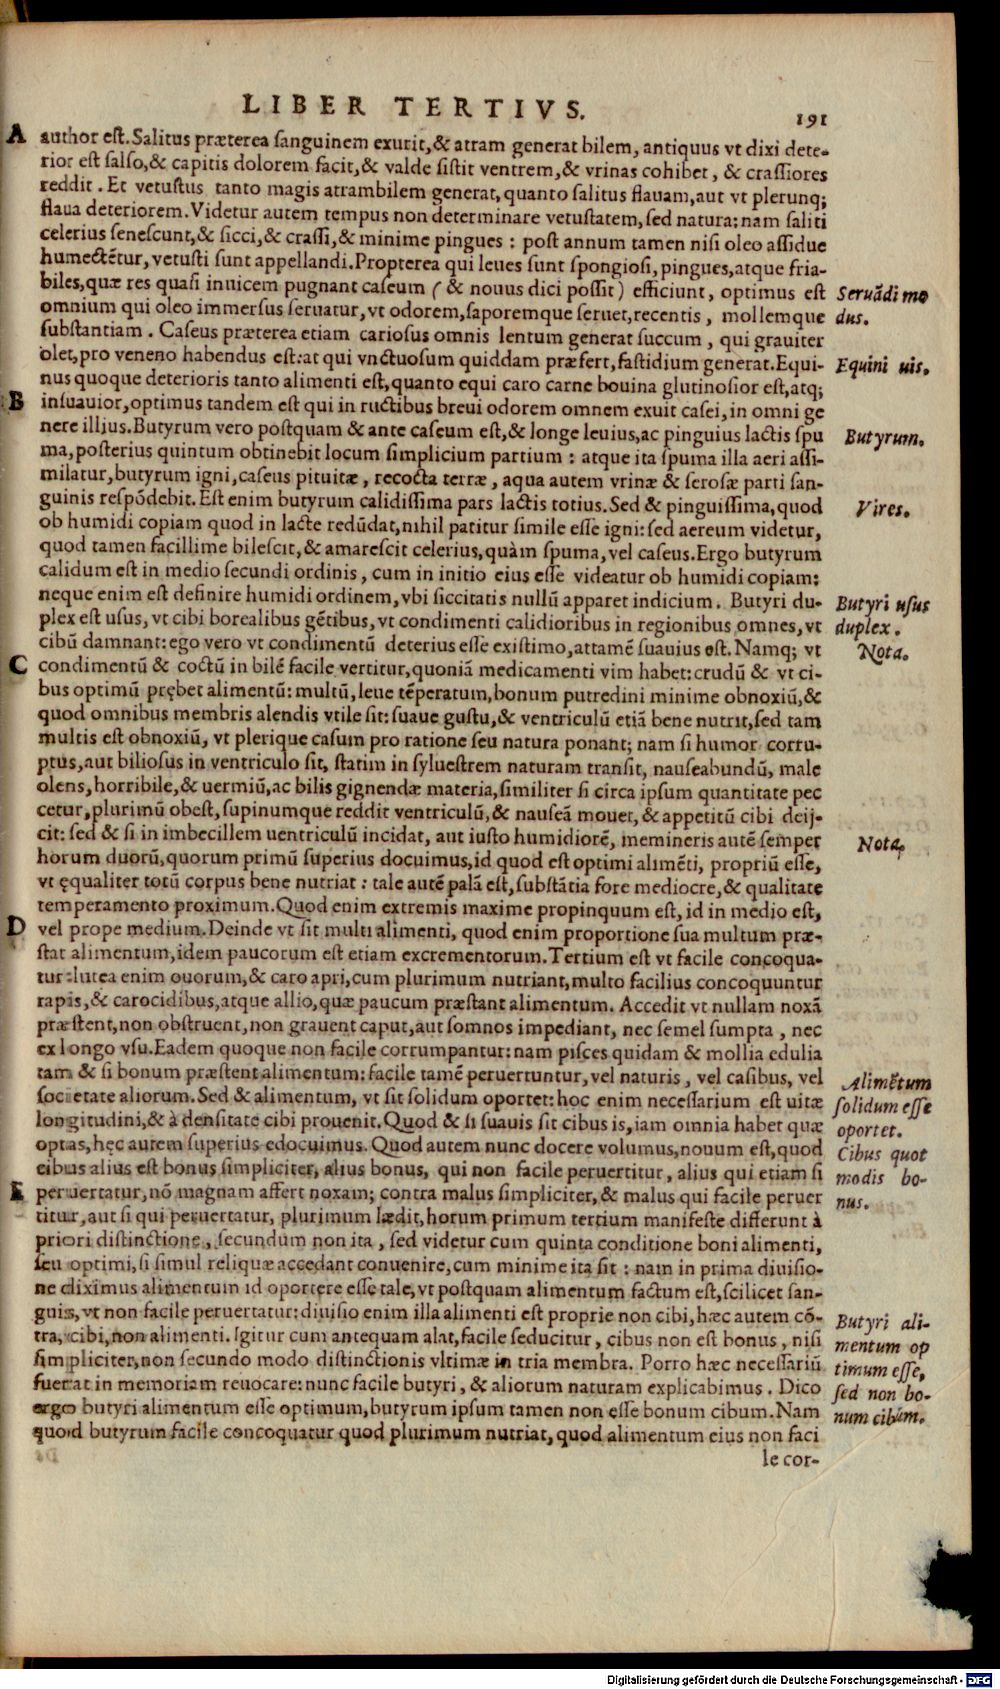 LIBER TERTIVS.
191
A author est. Salitus præterea sanguinem exurit, & atram generat bilem, antiquus vt dixi dete-
rior est salso, & capitis dolorem facit, & valde sistit ventrem, & vrinas cohibet, & crassiores
reddit. Et vetustus tanto magis atrambilem generat, quanto salitus flauam, aut vt plerunq;
flaua deteriorem. Videtur autem tempus non determinare vetustatem, sed natura: nam saliti
celerius senescunt, & sicci, & crassi, & minime pingues: post annum tamen nisi oleo assidue
humectẽtur, vetusti sunt appellandi. Propterea qui leues sunt spongiosi, pingues, atque fria-
biles, quæ res quasi inuicem pugnant caseum (& nouus dici possit) efficiunt, optimus est
Seruãdi mo
omnium qui oleo immersus seruatur, vt odorem, saporemque seruet, recentis, mollemque
dus.
substantiam. Caseus præterea etiam cariosus omnis lentum generat succum, qui grauiter
olet, pro veneno habendus est: at qui vnctuosum quiddam præfert, fastidium generat. Equi-
Equini uis.
nus quoque deterioris tanto alimenti est, quanto equi caro carne bouina glutinosior est, atq;
B insuauior, optimus tandem est qui in ructibus breui odorem omnem exuit casei, in omni ge
nere illius. Butyrum vero postquam & ante caseum est, & longe leuius, ac pinguius lactis spu
Butyrum.
ma, posterius quintum obtinebit locum simplicium partium: atque ita spuma illa aeri assi-
milatur, butyrum igni, caseus pituitæ, recocta terræ, aqua autem vrinæ & serosæ parti san-
guinis respõdebit. Est enim butyrum calidissima pars lactis totius. Sed & pinguissima, quod
Vires.
ob humidi copiam quod in lacte redũdat, nihil patitur simile esse igni: sed aereum videtur,
quod tamen facillime bilescit, & amarescit celerius, quàm spuma, vel caseus. Ergo butyrum
calidum est in medio secundi ordinis, cum in initio eius esse videatur ob humidi copiam:
neque enim est definire humidi ordinem, vbi siccitatis nullũ apparet indicium. Butyri du-
Butyri usus
plex est usus, vt cibi borealibus gẽtibus, vt condimenti calidioribus in regionibus omnes, vt
duplex.
cibũ damnant: ego vero vt condimentũ deterius esse existimo, attamẽ suauius est. Namq; vt
Nota.
C condimentũ & coctũ in bilẽ facile vertitur, quoniã medicamenti vim habet: crudũ & vt ci-
bus optimũ prębet alimentũ: multũ, leue tẽperatum, bonum putredini minime obnoxiũ, &
quod omnibus membris alendis vtile sit: suaue gustu, & ventriculũ etiã bene nutrit, sed tam
multis est obnoxiũ, vt plerique casum pro ratione seu natura ponant; nam si humor corru-
ptus, aut biliosus in ventriculo sit, statim in syluestrem naturam transit, nauseabundũ, male
olens, horribile, & uermiũ, ac bilis gignendæ materia, similiter si circa ipsum quantitate pec
cetur, plurimũ obest, supinumque reddit ventriculũ, & nauseã mouet, & appetitũ cibi deij-
cit: sed & si in imbecillem uentriculũ incidat, aut iusto humidiorẽ, memineris autẽ semper
Nota,
horum duorũ, quorum primũ superius docuimus, id quod est optimi alimẽti, propriũ esse,
vt ęqualiter totũ corpus bene nutriat: tale autẽ palã est, substãtia fore mediocre, & qualitate
temperamento proximum. Quod enim extremis maxime propinquum est, id in medio est,
D vel prope medium. Deinde vt sit multi alimenti, quod enim proportione sua multum præ-
stat alimentum, idem paucorum est etiam excrementorum. Tertium est vt facile concoqua-
tur: lutea enim ouorum, & caro apri, cum plurimum nutriant, multo facilius concoquuntur
rapis, & carocidibus, atque allio, quæ paucum præstant alimentum. Accedit vt nullam noxã
præstent, non obstruent, non grauent caput, aut somnos impediant, nec semel sumpta, nec
ex longo vsu. Eadem quoque non facile corrumpantur: nam pisces quidam & mollia edulia
tam & si bonum præstent alimentum: facile tamẽ peruertuntur, vel naturis, vel casibus, vel
Alimẽtum
societate aliorum. Sed & alimentum, vt sit solidum oportet: hoc enim necessarium est uitæ
solidum esse
longitudini, & à densitate cibi prouenit. Quod & si suauis sit cibus is, iam omnia habet quæ
oportet.
optas, hęc autem superius edocuimus. Quod autem nunc docere volumus, nouum est, quod
Cibus quot
cibus alius est bonus simpliciter, alius bonus, qui non facile peruertitur, alius qui etiam si
modis bo-
E peruertatur, nõ magnam affert noxam; contra malus simpliciter, & malus qui facile peruer
nus.
titur, aut si qui peruertatur, plurimum lædit, horum primum tertium manifeste differunt à
priori distinctione, secundum non ita, sed videtur cum quinta conditione boni alimenti,
seu optimi, si simul reliquæ accedant conuenire, cum minime ita sit: nam in prima diuisio-
ne diximus alimentum id oportere esse tale, vt postquam alimentum factum est, scilicet san-
guis, vt non facile peruertatur: diuisio enim illa alimenti est proprie non cibi, hæc autem cõ-
Butyri ali-
tra, cibi, non alimenti. Igitur cum antequam alat, facile seducitur, cibus non est bonus, nisi
mentum op
simpliciter, non secundo modo distinctionis vltimæ in tria membra. Porro hæc necessariũ
timum esse,
fuerat in memoriam reuocare: nunc facile butyri, & aliorum naturam explicabimus. Dico
sed non bo-
ergo butyri alimentum esse optimum, butyrum ipsum tamen non esse bonum cibum. Nam
num cibum.
quod butyrum facile concoquatur quod plurimum nutriat, quod alimentum eius non faci
le cor-
Digitalisierung gefördert durch die Deutsche Forschungsgemeinschaft - DFG